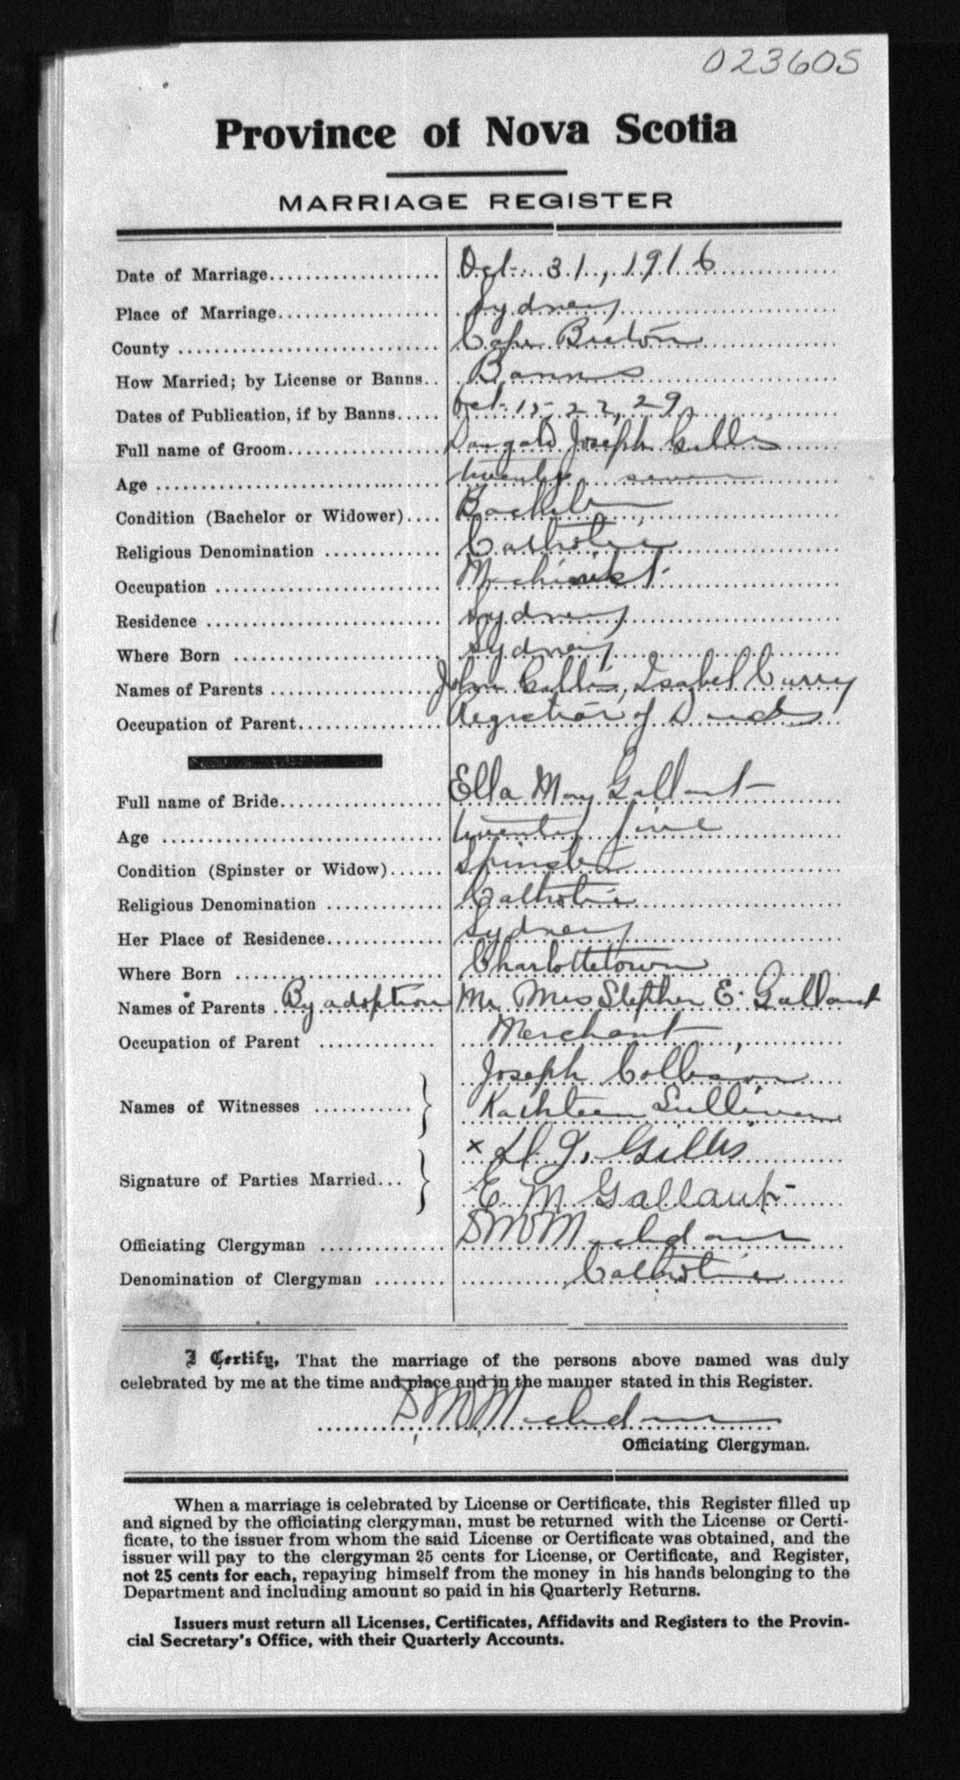 023605
Province of Nova Scotia
MARRIAGE REGISTER
Date of Marriage Oct. 31, 1916
Place of Marriage Sydney
County Cape Breton
How Married; by License or Banns Banns
Dates of Publication, if by Banns Oct. 15, 22, 29
Full name of Groom Dougald Joseph Gillis
Age twenty seven
Condition (Bachelor or Widower) Bachelor
Religious Denomination Catholic
Occupation Machinist
Residence Sydney
Where Born Sydney
Names of Parents John Gillis, Isabel Curry
Occupation of Parent Registrar of Deeds
Full name of Bride Ella May Gallant
Age twenty five
Condition (Spinster or Widow) Spinster
Religious Denomination Catholic
Her Place of Residence Sydney
Where Born Charlottetown
Names of Parents By adoption Mr Mrs Stephen E. Gallant
Occupation of Parent Merchant
Joseph
Names of Witnesses
Kathleen Sullivan
x D J. Gillis
Signature of Parties Married
E. M Gallant
Officiating Clergyman
Denomination of Clergyman Catholic
I Certify, That the marriage of the persons above named was duly
celebrated by me at the time and place and in the manner stated in this Register.
Officiating Clergyman.
When a marriage is celebrated by License or Certificate, this Register filled up
and signed by the officiating clergyman, must be returned with the License or Certi-
ficate, to the issuer from whom the said License or Certificate was obtained, and the
issuer will pay to the clergyman 25 cents for License, or Certificate, and Register,
not 25 cents for each, repaying himself from the money in his hands belonging to the
Department and including amount so paid in his Quarterly Returns.
Issuers must return all Licenses, Certificates, Affidavits and Registers to the Provin-
cial Secretary's Office, with their Quarterly Accounts.